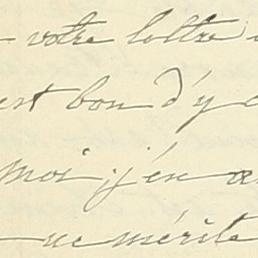 votre lettre
est bon d'y
moi j'en
ne mérite